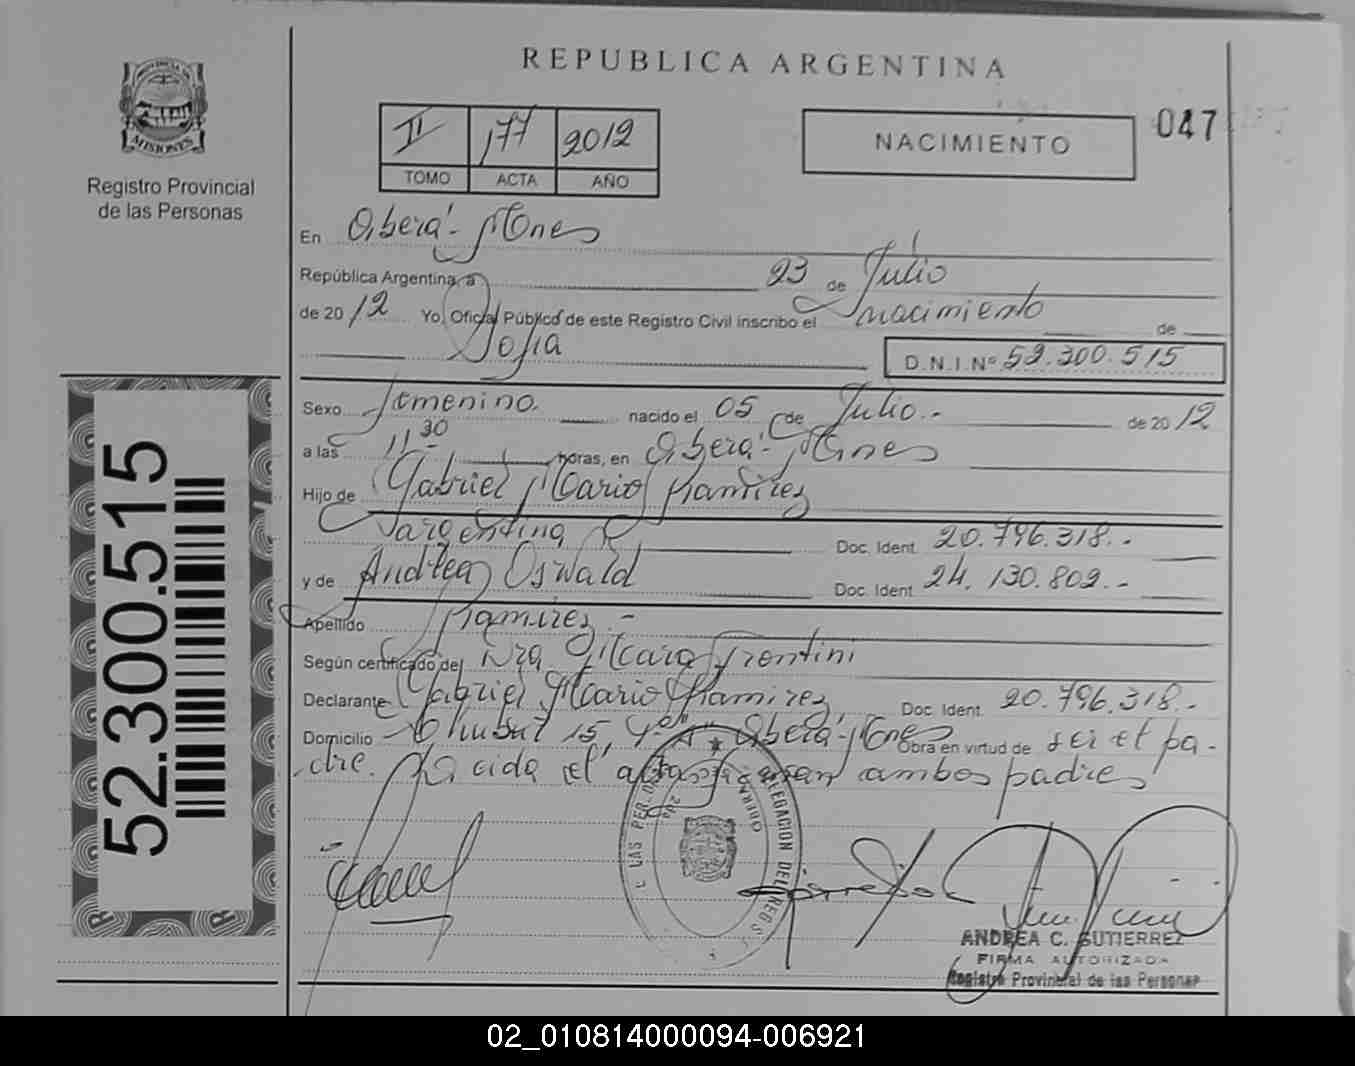 REPUBLICA ARGENTINA
PROVINCIA DE
MISIONES
Registro Provincial
de las Personas
II 177 2012
TOMO ACTA AÑO
NACIMIENTO
047
En Oberá - Mnes
República Argentina, a 23 de Julio
de 2012 Yo, Oficial Público de este Registro Civil inscribo el nacimiento de
Sofia D.N.I.Nº 52.300.515
Sexo Femenino. nacido el 05 de Julio.- de 2012
a las 11 30 horas, en Oberá - Mnes
Hijo de Gabriel Mario Ramirez
argentina Doc. Ident. 20.796.318.-
y de Andrea Oswald Doc. Ident. 24.130.802.-
Apellido Ramirez.-
Según certificado de Dra. Micara Frontini
Declarante Gabriel Mario Ramirez Doc. Ident. 20.796.318.-
Domicilio Chubut 15, Oberá - Mnes Obra en virtud de ser el pa-
dre. Leida el acta firman ambos padres
52.300.515
DELEGACION DEL REG.
LAS PER.
OBERA
ANDREA C. GUTIERREZ
FIRMA AUTORIZADA
Registro Provincial de las Personas
02_010814000094-006921